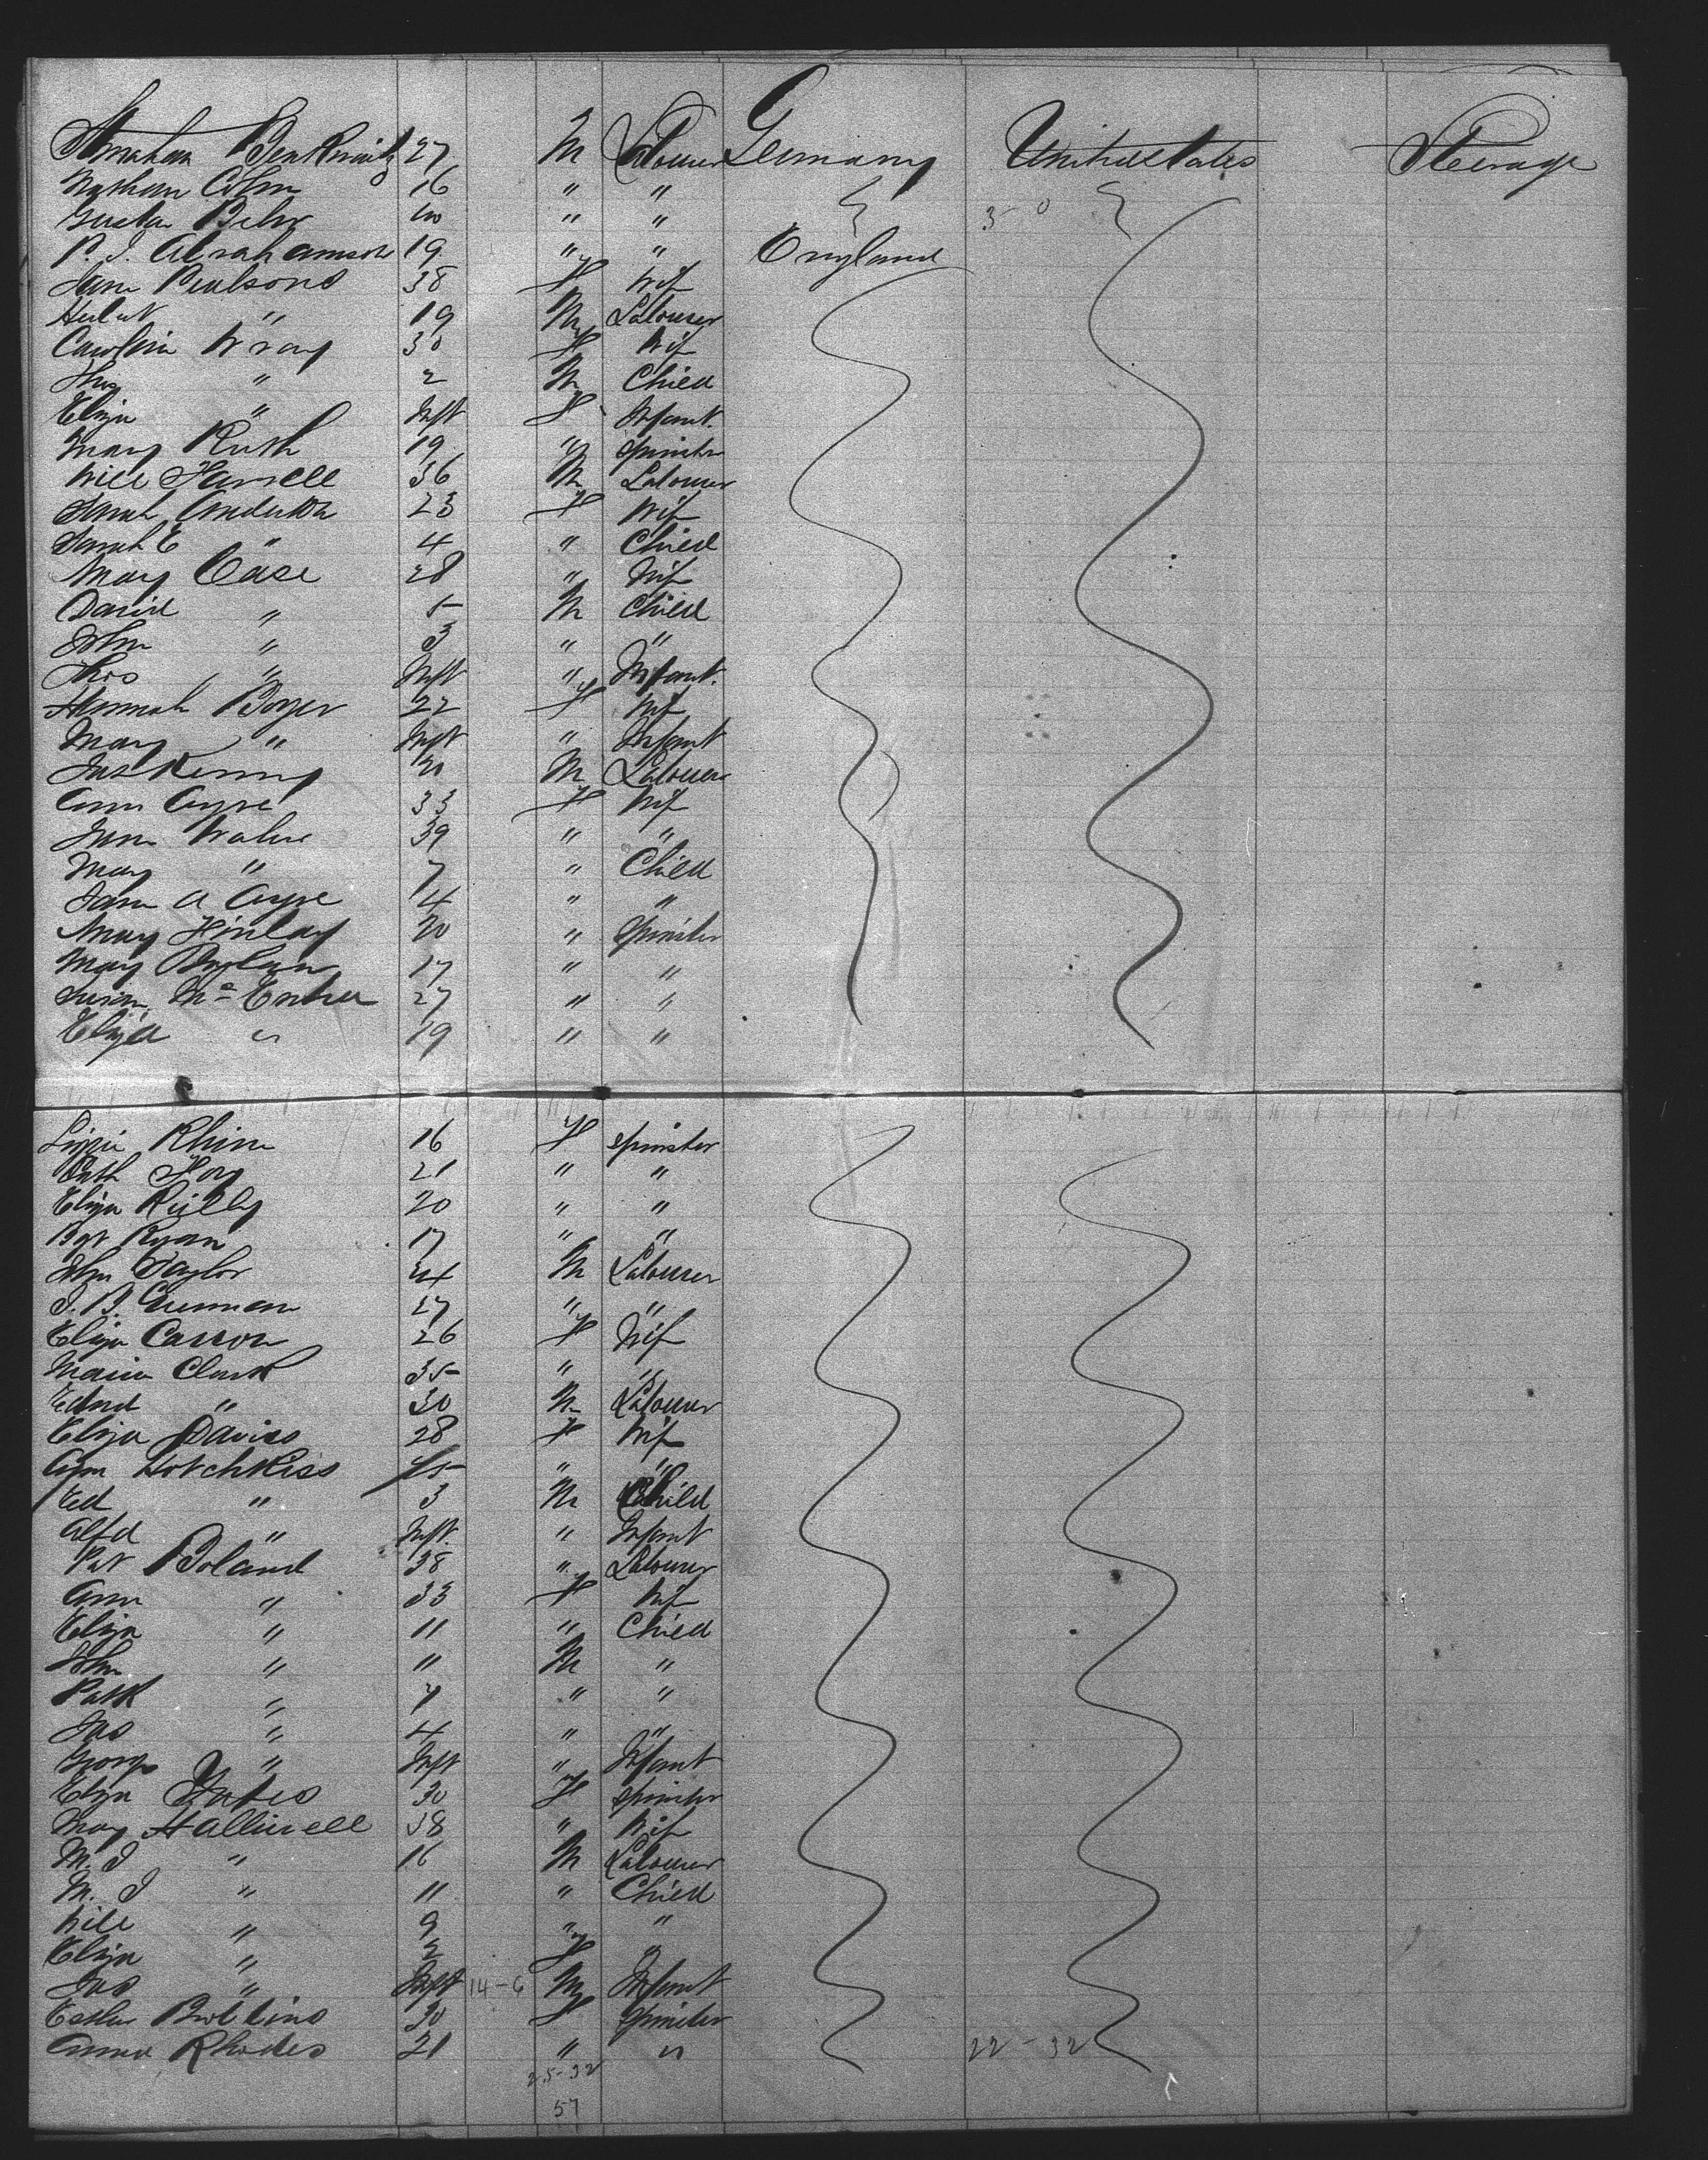 Abraham 27 M Labourer Germany United States Steerage
Nathan Cohn 16 " "
Gustav Behr 40 " " 3 - 0
P. J. Abrahamson 19 " " England
Jane Pealsons 38 F Wife
Herbert " 19 M Labourer
Caroline Wray 30 F Wife
Thos " 2 M Child
Eliza " Inft F Infant.
Mary Rush 19 " Spinster
Will Harrell 36 M Labourer
Sarah 23 F Wife
Sarah E " 4 " Child
Mary Case 28 " Wife
David " 5 M Child
John " 3 " "
Thos " Inft " Infant.
Hannah Boyer 22 F Wife
Mary " Inft " Infant
Jas Kenny 21 M Labourer
Ann Ayre 33 F Wife
Jane 39 " "
Mary " 7 " Child
Jane A Ayre 4 " "
Mary Finlay 20 " Spinster
Mary Boylan 17 " "
Susan Mc Entee 27 " "
Eliza " 19 " "
Lizzie Rhine 16 F Spinster
Cath Foy 21 " "
Eliza Reilly 20 " "
Bgt Ryan 17 " "
John Taylor 24 M Labourer
J. B. 27 " "
Eliza Carron 26 F Wife
Maria Clark 35 " "
Edmd " 30 M Labourer
Eliza Davies 28 F Wife
Ann Hotchkiss 45 " "
Ed " 3 M Child
Alfd " Inft. " Infant
Pat Boland 38 " Labourer
Ann " 33 F Wife
Eliza " 11 " Child
John " 11 M "
Patk " 7 " "
Jas " 4 " "
George " Inft " Infant
Eliza Yates 30 F Spinster
Mary Halliwell 38 " Wife
M. J " 16 M Labourer
M. J " 11 " Child
Will " 9 " "
Eliza " 2 F "
Jas " Inft 14-6 M Infant
Esther Robbins 30 F Spinster
Anna Rhodes 21 " " 22 - 32
25-32
57